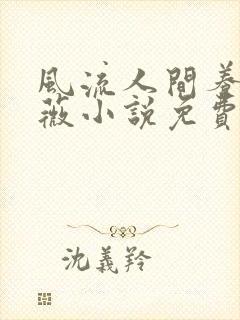 風流人間養
薇小說免費
沈義羚